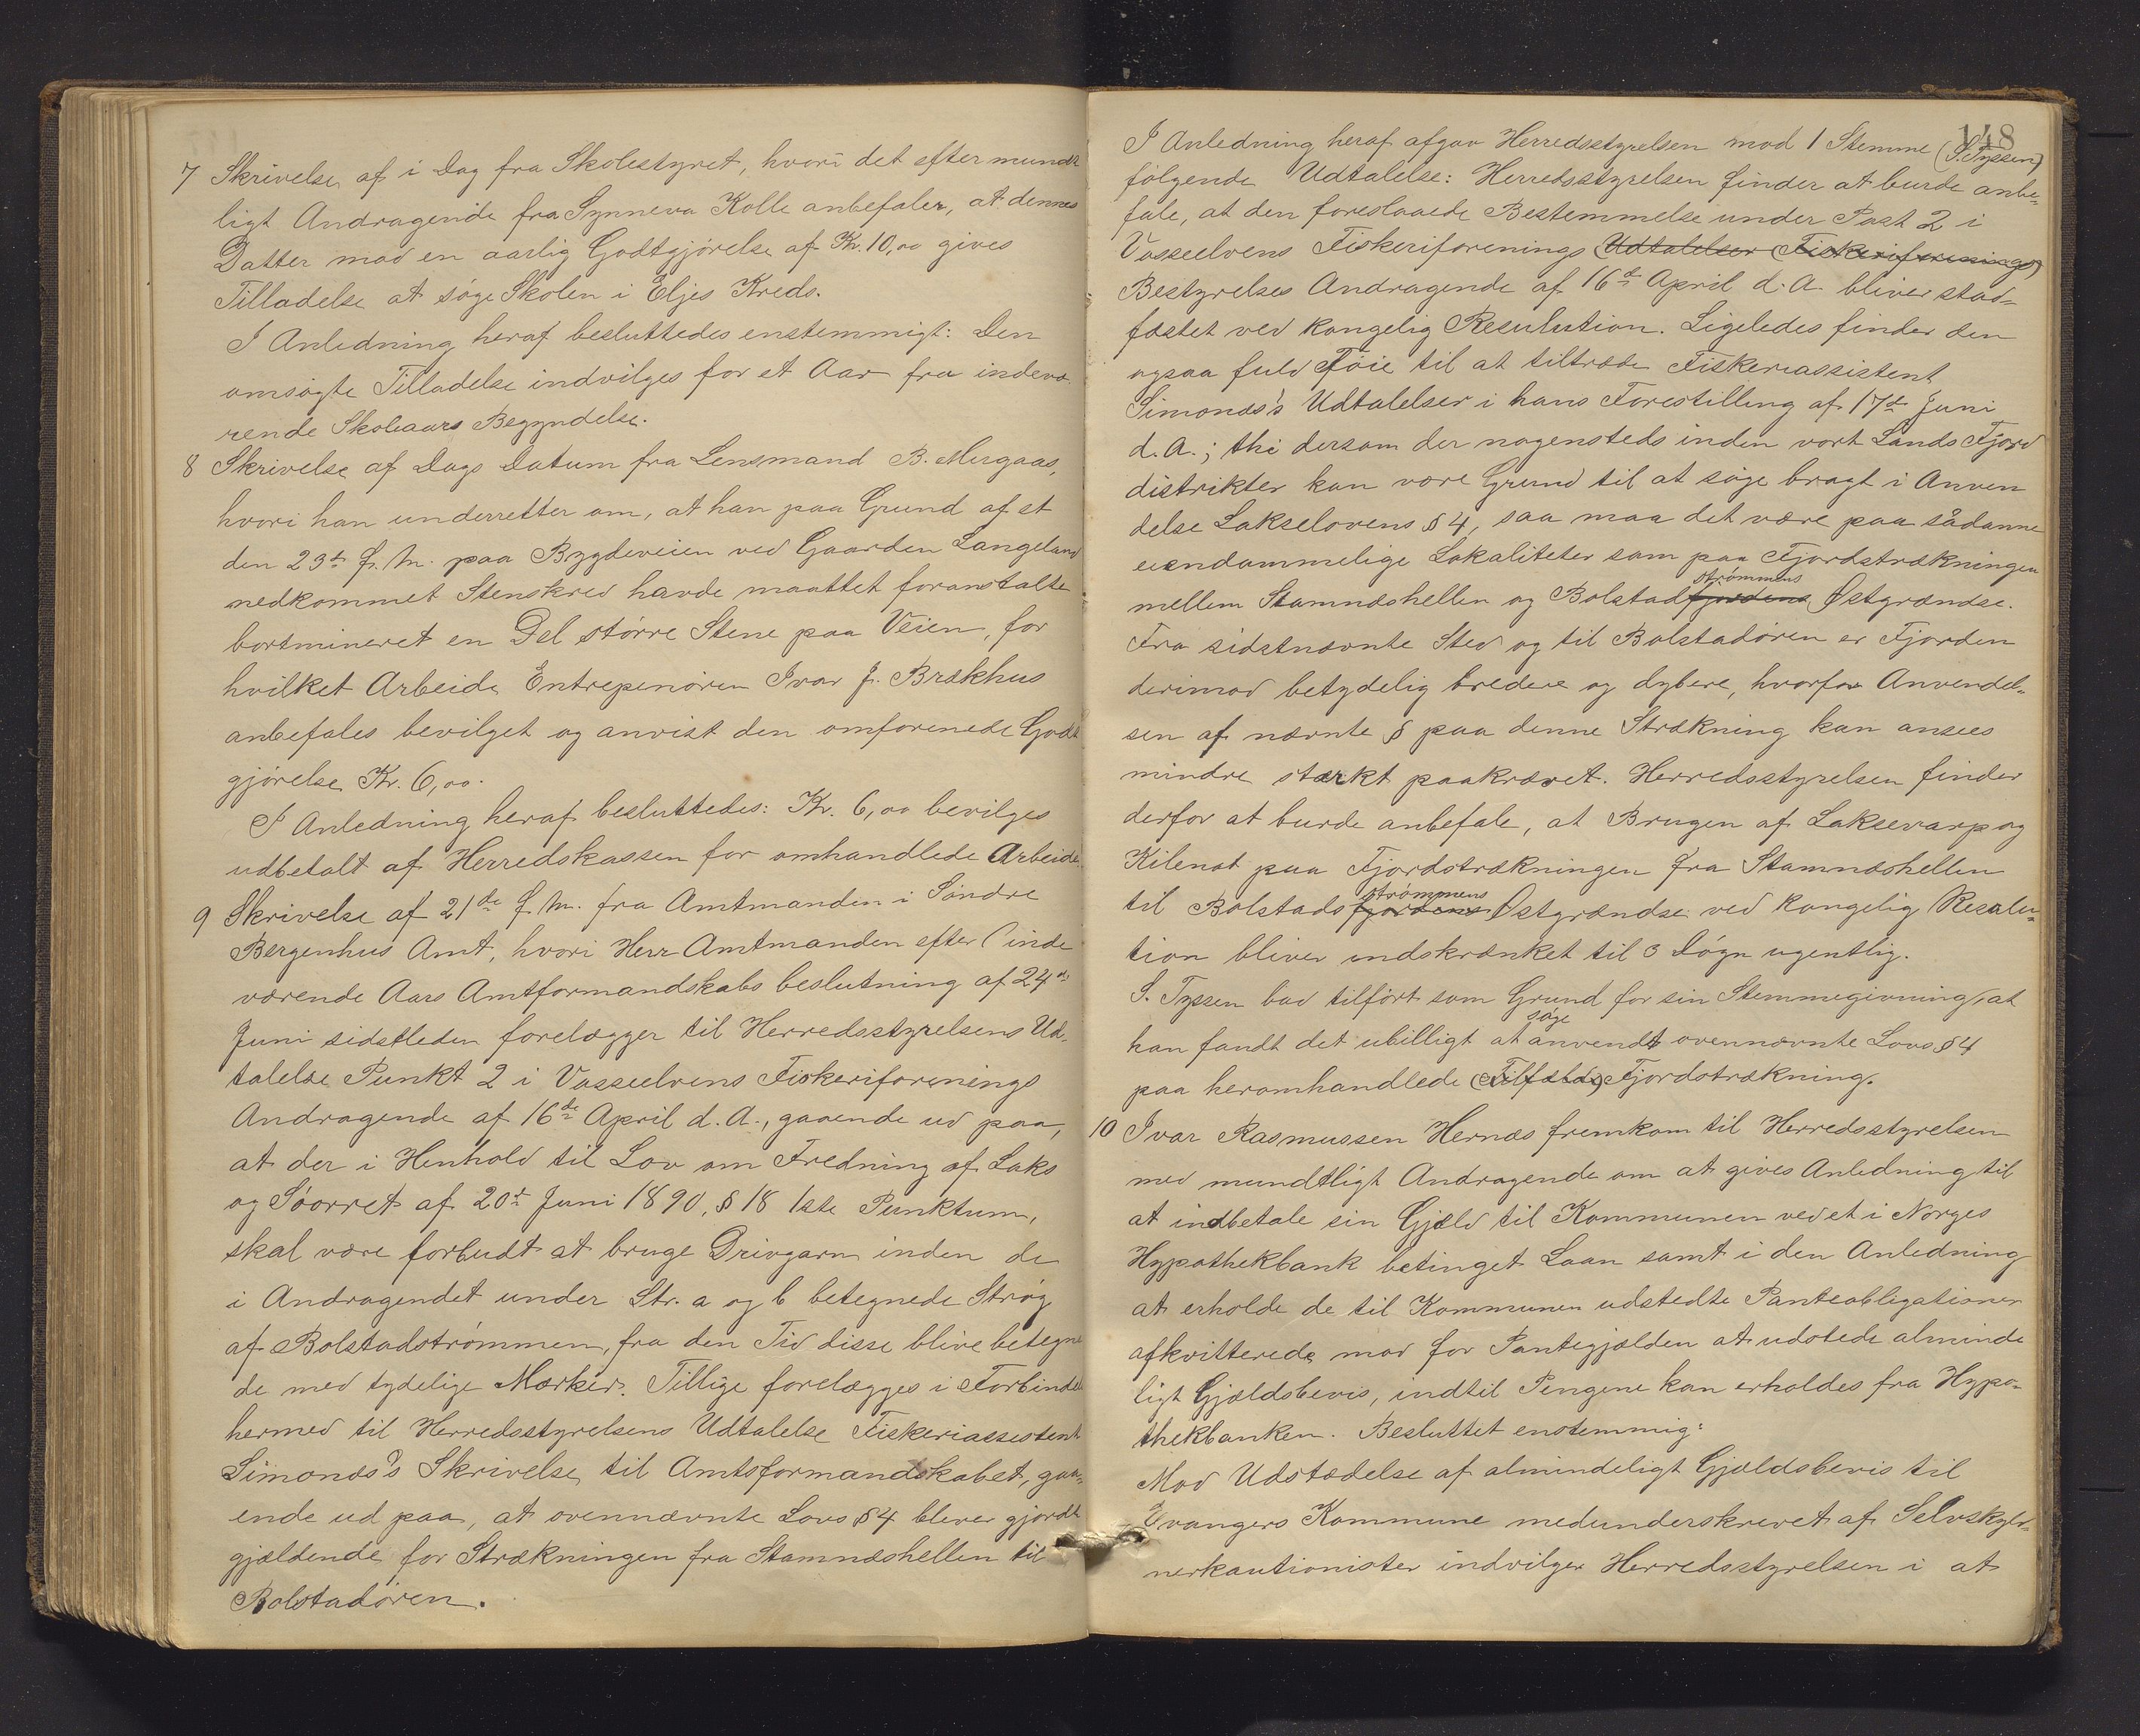 7 Skrivelse af i Dag fra Skolestyret, hvori det efter mundt
ligt Andragende fra Synneva Kolle anbefaler, at dennes
Datter mod en aarlig Godtgjörelse af Kr. 10,00 gives
Tilladelse at söge Skolen i Eljes Kreds.
I Anledning heraf besluttedes enstemmigt: Den
omsögte Tilladelse indvilges for et Aar fra indevæ
rende Skoleaars Begyndelse.
8 Skrivelse af Dags Datum fra Lensmand B. Mugaas,
hvori han underretter om, at han paa Grund af et
den 23de f. M. paa Bygdeveien ved Gaarden Langeland
nedkommet Stenskred havde maattet foranstalte
bortmineret en Del större Stene paa Veien, for
hvilket Arbeide Entrepenören Ivar J. Brækhus
anbefales bevilget og anvist den omforenede Godt
gjörelse Kr. 6,00.
I Anledning heraf besluttedes: Kr. 6,00 bevilges
udbetalt af Herredskassen for omhandlede Arbeide.
9 Skrivelse af 21de f. M. fra Amtmanden i Söndre
Bergenhus Amt, hvori Herr Amtmanden efter (inde
værende Aars Amtformandskabs beslutning af 24de
Juni sidstleden forelægger til Herredsstyrelsens Ud-
talelse Punkt 2 i Vosseelvens Fiskeriforenings
Andragende af 16de April d. A., gaaende ud paa,
at der i Henhold til Lov om Fredning af Laks
og Söorret af 20de Juni 1890, § 18 1ste Punktum,
skal være forbudt at bruge Drivgarn inden de
i Andragendet under Litr. a og b betegnede Strög
af Bolstadströmmen, fra den Tid disse blive betegne
de med tydelige Mærker. Tillige forelægges i Forbindel
hermed til Herredsstyrelsens Udtalelse Fiskeriassistent
Simonæs's Skrivelse til Amtsformandskabet, gaa-
ende ud paa, at ovennævnte Lovs § 4 bliver gjordt
gjældende for Strækningen fra Stamnæshellen til
Bolstadören.
148
I Anledning heraf afgav Herredsstyrelsen mod 1 Stemme (S. Tyssen)
fölgende Udtalelse: Herredsstyrelsen finder at burde anbe-
fale, at den foreslaaede Bestemmelse under Post 2 i
Vosseelvens Fiskeriforenings (Udtalelser (Fiskeriforenings)
Bestyrelses Andragende af 16de April d. A bliver stad-
fæstet ved kongelig Resulution. Ligeledes finder den
ogsaa fuld Föie til at tiltræde Fiskeriassistent
Simonæs's Udtalelser i hans Forestilling af 17de Juni
d. A.; thi dersom der nogensteds inden vort Lands Fjord
distrikter kan være Grund til at söge bragt i Anven
delse Lakselovens § 4, saa maa det være paa sådanne
eiendommelige Lokaliteter som paa Fjordstrækningen
mellem Stamnæshellen og Bolstadfjordens strömmens Østgrændse.
Fra sidstnævnte Sted og til Bolstadören er Fjorden
derimod betydelig bredere og dybere, hvorfor Anvendel-
sen af nævnte § paa denne Strækning kan ansees
mindre stærkt paakrævet. Herredsstyrelsen finder
derfor at burde anbefale, at Brugen af Laksevarp og
Kilenot paa Fjordstrækningen fra Stamnæshellen
til Bolstadsfjordens strömmens Østgrændse ved kongelig Resolu-
tion bliver indskrænket til 3 Dögn ugentlig.
S. Tyssen bad tilfört som Grund for sin Stemmegivning, at
han fandt det ubilligt at söge anvendt ovennævnte Lovs § 4
paa heromhandlede (Tilfælde) Fjordstrækning.
10 Ivar Rasmussen Hernæs fremkom til Herredsstyrelsen
med mundtligt Andragende om at gives Anledning til
at indbetale sin Gjæld til Kommunen ved et i Norges
Hypothekbank betinget Laan samt i den Anledning
at erholde de til Kommunen udstedte Panteobligationer
afkvitterede mod for Pantegjælden at udstede alminde
ligt Gjældsbevis, indtil Pengene kan erholdes fra Hypo-
thekbanken. Besluttet enstemmig:
Mod Udstædelse af almindeligt Gjældsbevis til
Evangers Kommune medunderskrevet af Selvskyld-
nerkautionister indvilger Herredsstyrelsen i at